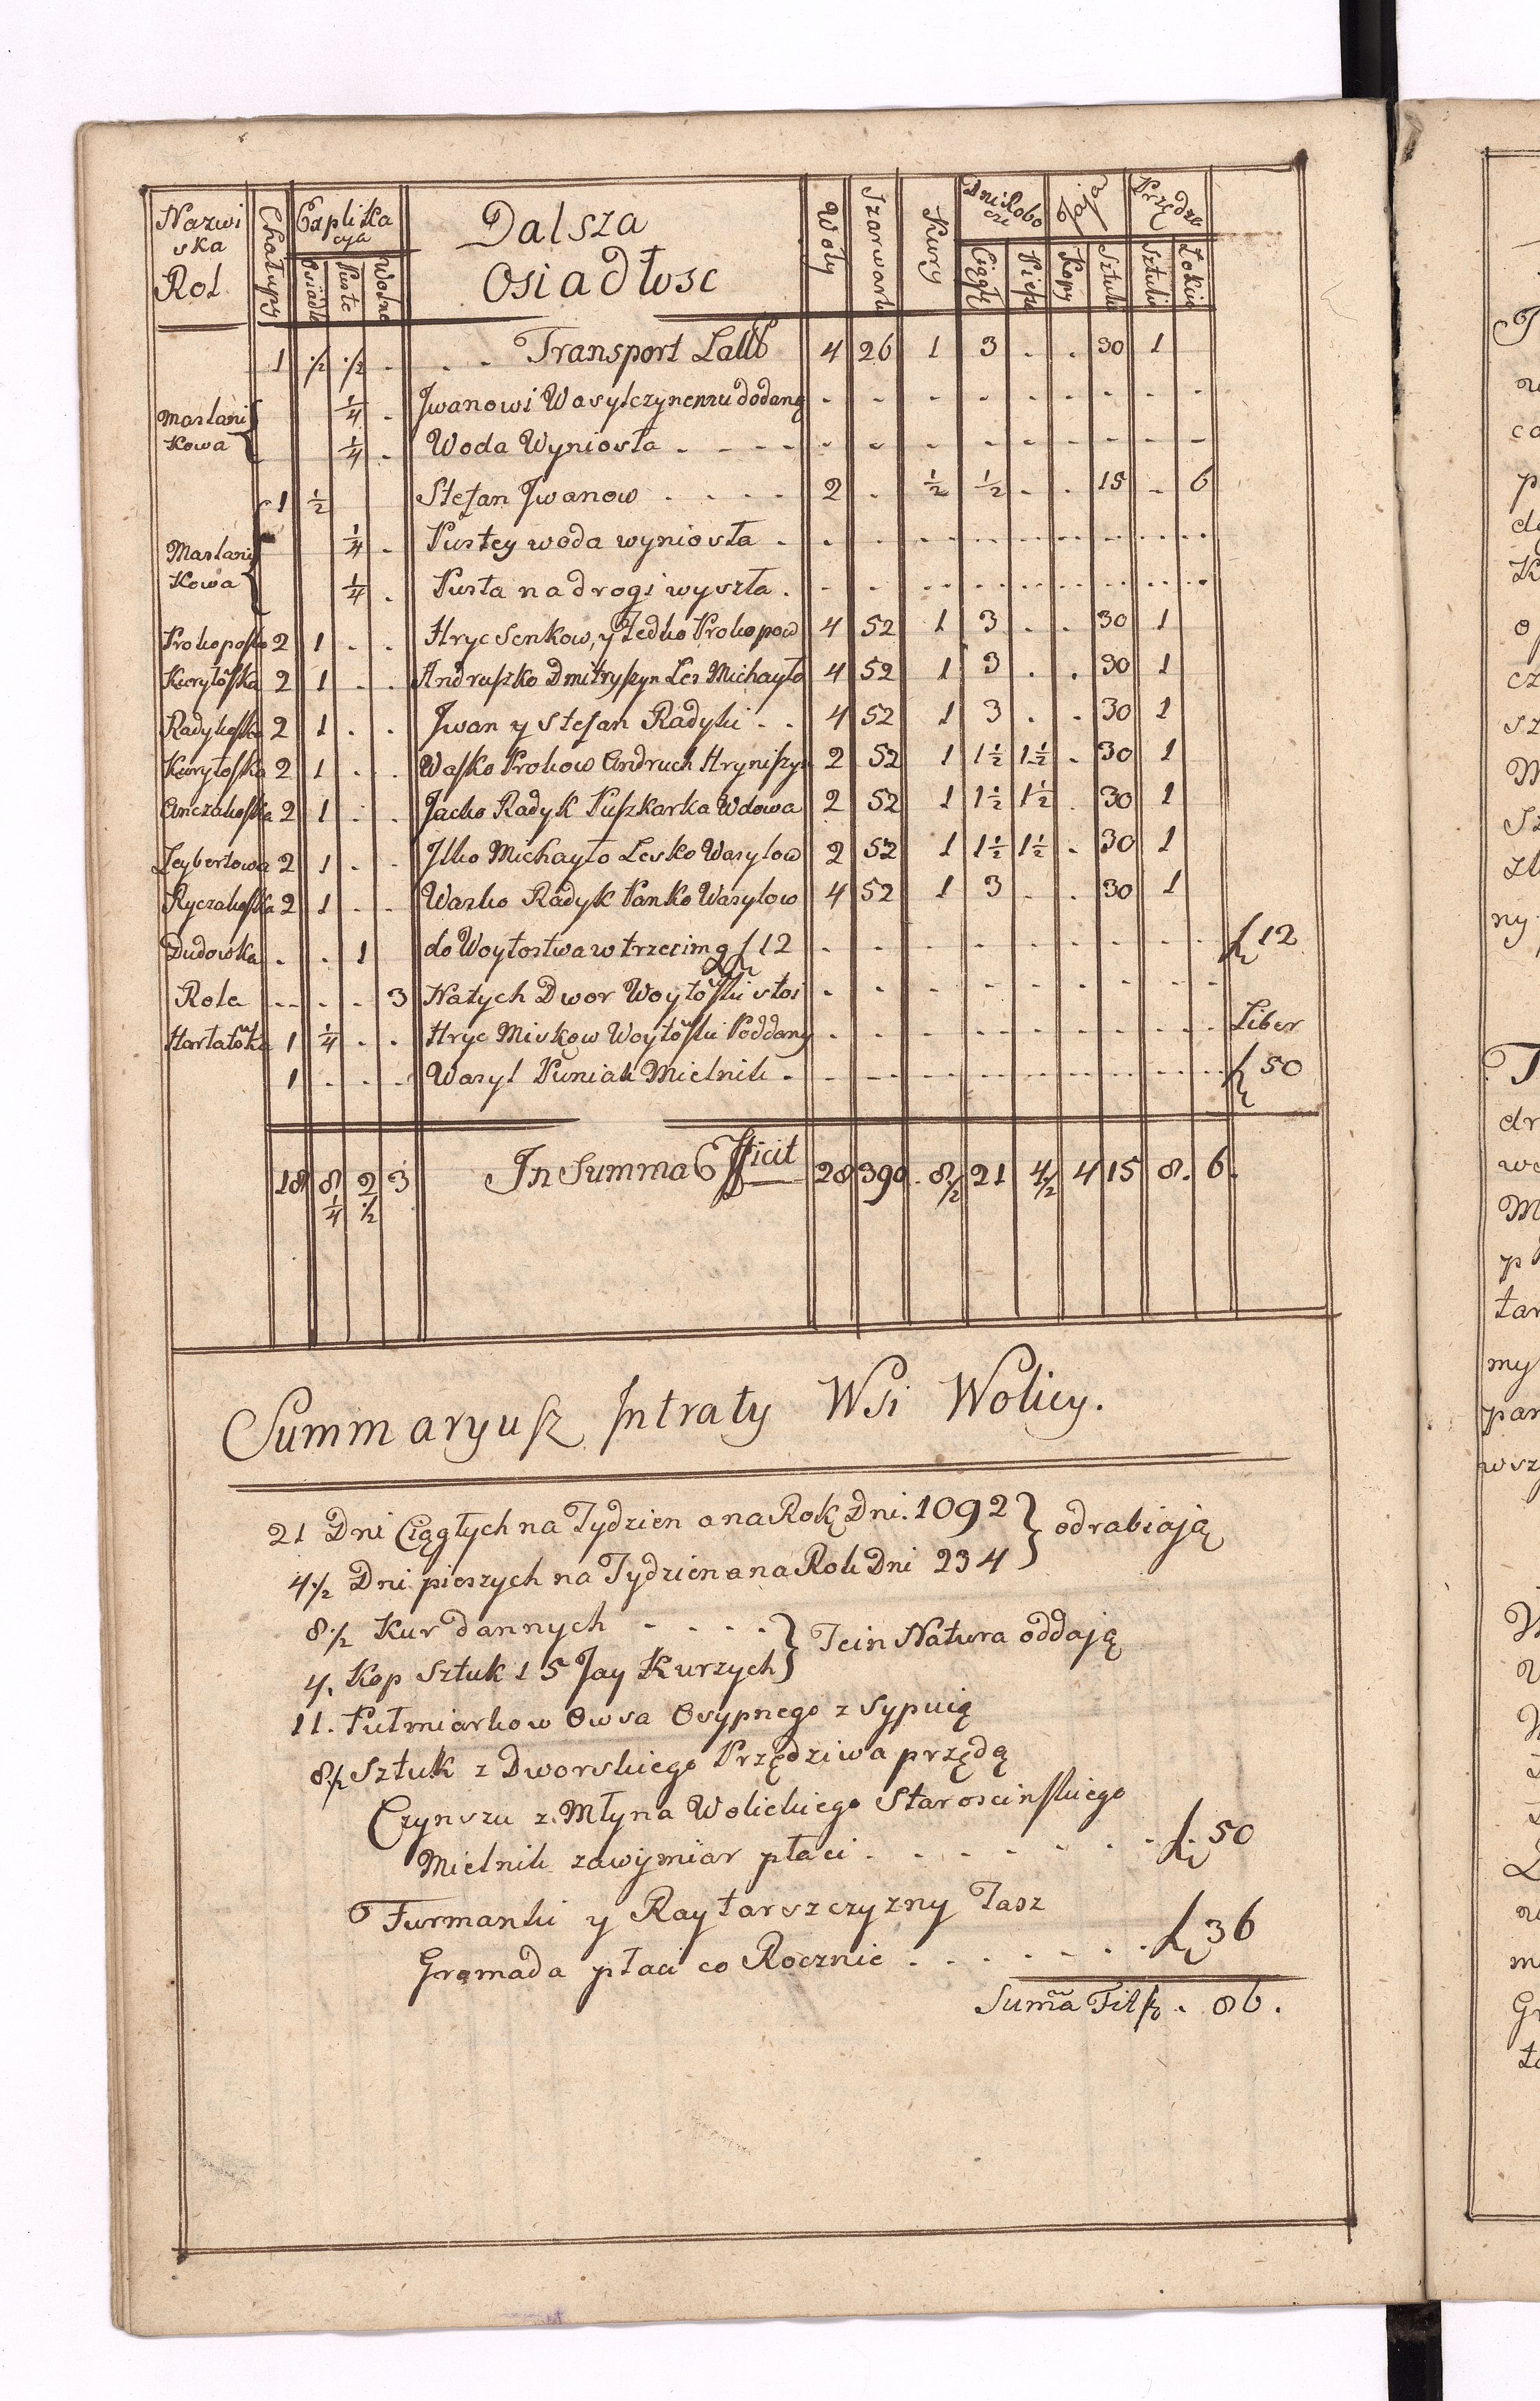 Nazwi ska Rol | Chałupy | Explika cya | Dalsza Osiadłosc | Woły | Szarwark | Kury | Dni Robo cze | Jaja | Przędza
Osiadłe | Puste | Wolne | Ciągłe | Piesze | Kopy | Sztuki | Sztuki | Łokcie
1 | ½ | ½ | . | . . Transport Latus | 4 | 26 | 1 | 3 | . | . | 30 | 1
Maslani kowa | ¼ | . | Jwanowi Wasylczynemu dodaną
¼ | . | Woda Wyniosła . - - -
1 | ½ | Stefan Jwanow . . . . | 2 | . | ½ | ½ | . | . | 15 | . | 6
Maslani kowa | ¼ | . | Pustey woda wyniosła .
¼ | . | Pusta na drogi wyszła .
2 | 1 | . | . | Hryc Senkow, y Fedko Prokopow | 4 | 52 | 1 | 3 | . | . | 30 | 1
2 | 1 | . | . | Andruszko Dmitryszyn Les Michayło | 4 | 52 | 1 | 3 | . | . | 30 | 1
2 | 1 | . | . | Jwan y Stefan Radyki . . | 4 | 52 | 1 | 3 | . | . | 30 | 1
2 | 1 | . | . | Wasko Prokow Andruch Hryniszyn | 2 | 52 | 1 | 1½ | 1½ | . | 30 | 1
2 | 1 | . | . | Jacko Radyk Puszkarka Wdowa | 2 | 52 | 1 | 1½ | 1½ | . | 30 | 1
Zeybertowa | 2 | 1 | . | . | Jlko Michayło Lesko Wasylow | 2 | 52 | 1 | 1½ | 1½ | . | 30 | 1
2 | 1 | . | . | Wasko Radyk Panko Wasylow | 4 | 52 | 1 | 3 | . | . | 30 | 1
Dudowska | . | . | 1 | do Woytostwa w trzecim 12 | 12
Rola | . | . | . | 3 | Natych Dwor Woytoski stoi
1 | ¼ | . | . | Hryc Miskow Woytoski Poddany | Liber
1 | . | . | . | Wasyl Puniak Mielnik . | 50
18 | 8¼ | 2½ | 3 | In Summa Efficit | 28 | 390 | 8½ | 21 | 4½ | 4 | 15 | 8. | 6.
Summaryusz Intraty Wsi Wolicy.
21 Dni Ciągłych na Tydzien a na Rok Dni. 1092 } odrabiaią
4½ Dni pieszych na Tydzien a na Rok Dni 234
8½ Kur dannych - . . . } Te in Natura oddają
4. Kop Sztuk 15 Jay Kurzych
11. Pułmiarkow Owsa Osypnego z sypuią
8½ Sztuk z Dworskiego Przędziwa przędą
Czynszu z Młyna Wolickiego Staroscinskiego
Mielnik zawymiar płaci . . . . . . 50
Furmanki y Raytarszczyzny Tasz
Gromada płaci co Rocznie . . . . . . 36
Suma Fit . 86.